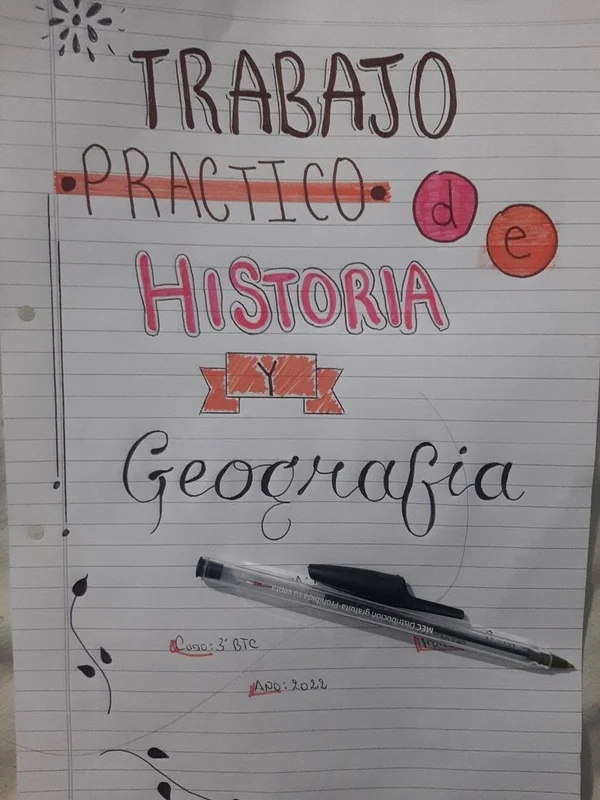 TRABAJO
PRACTICO de
HISTORIA
Y
Geografia
MEC Distribución gratuita-Prohibida su venta
Curso: 3° BTC
AÑO: 2022